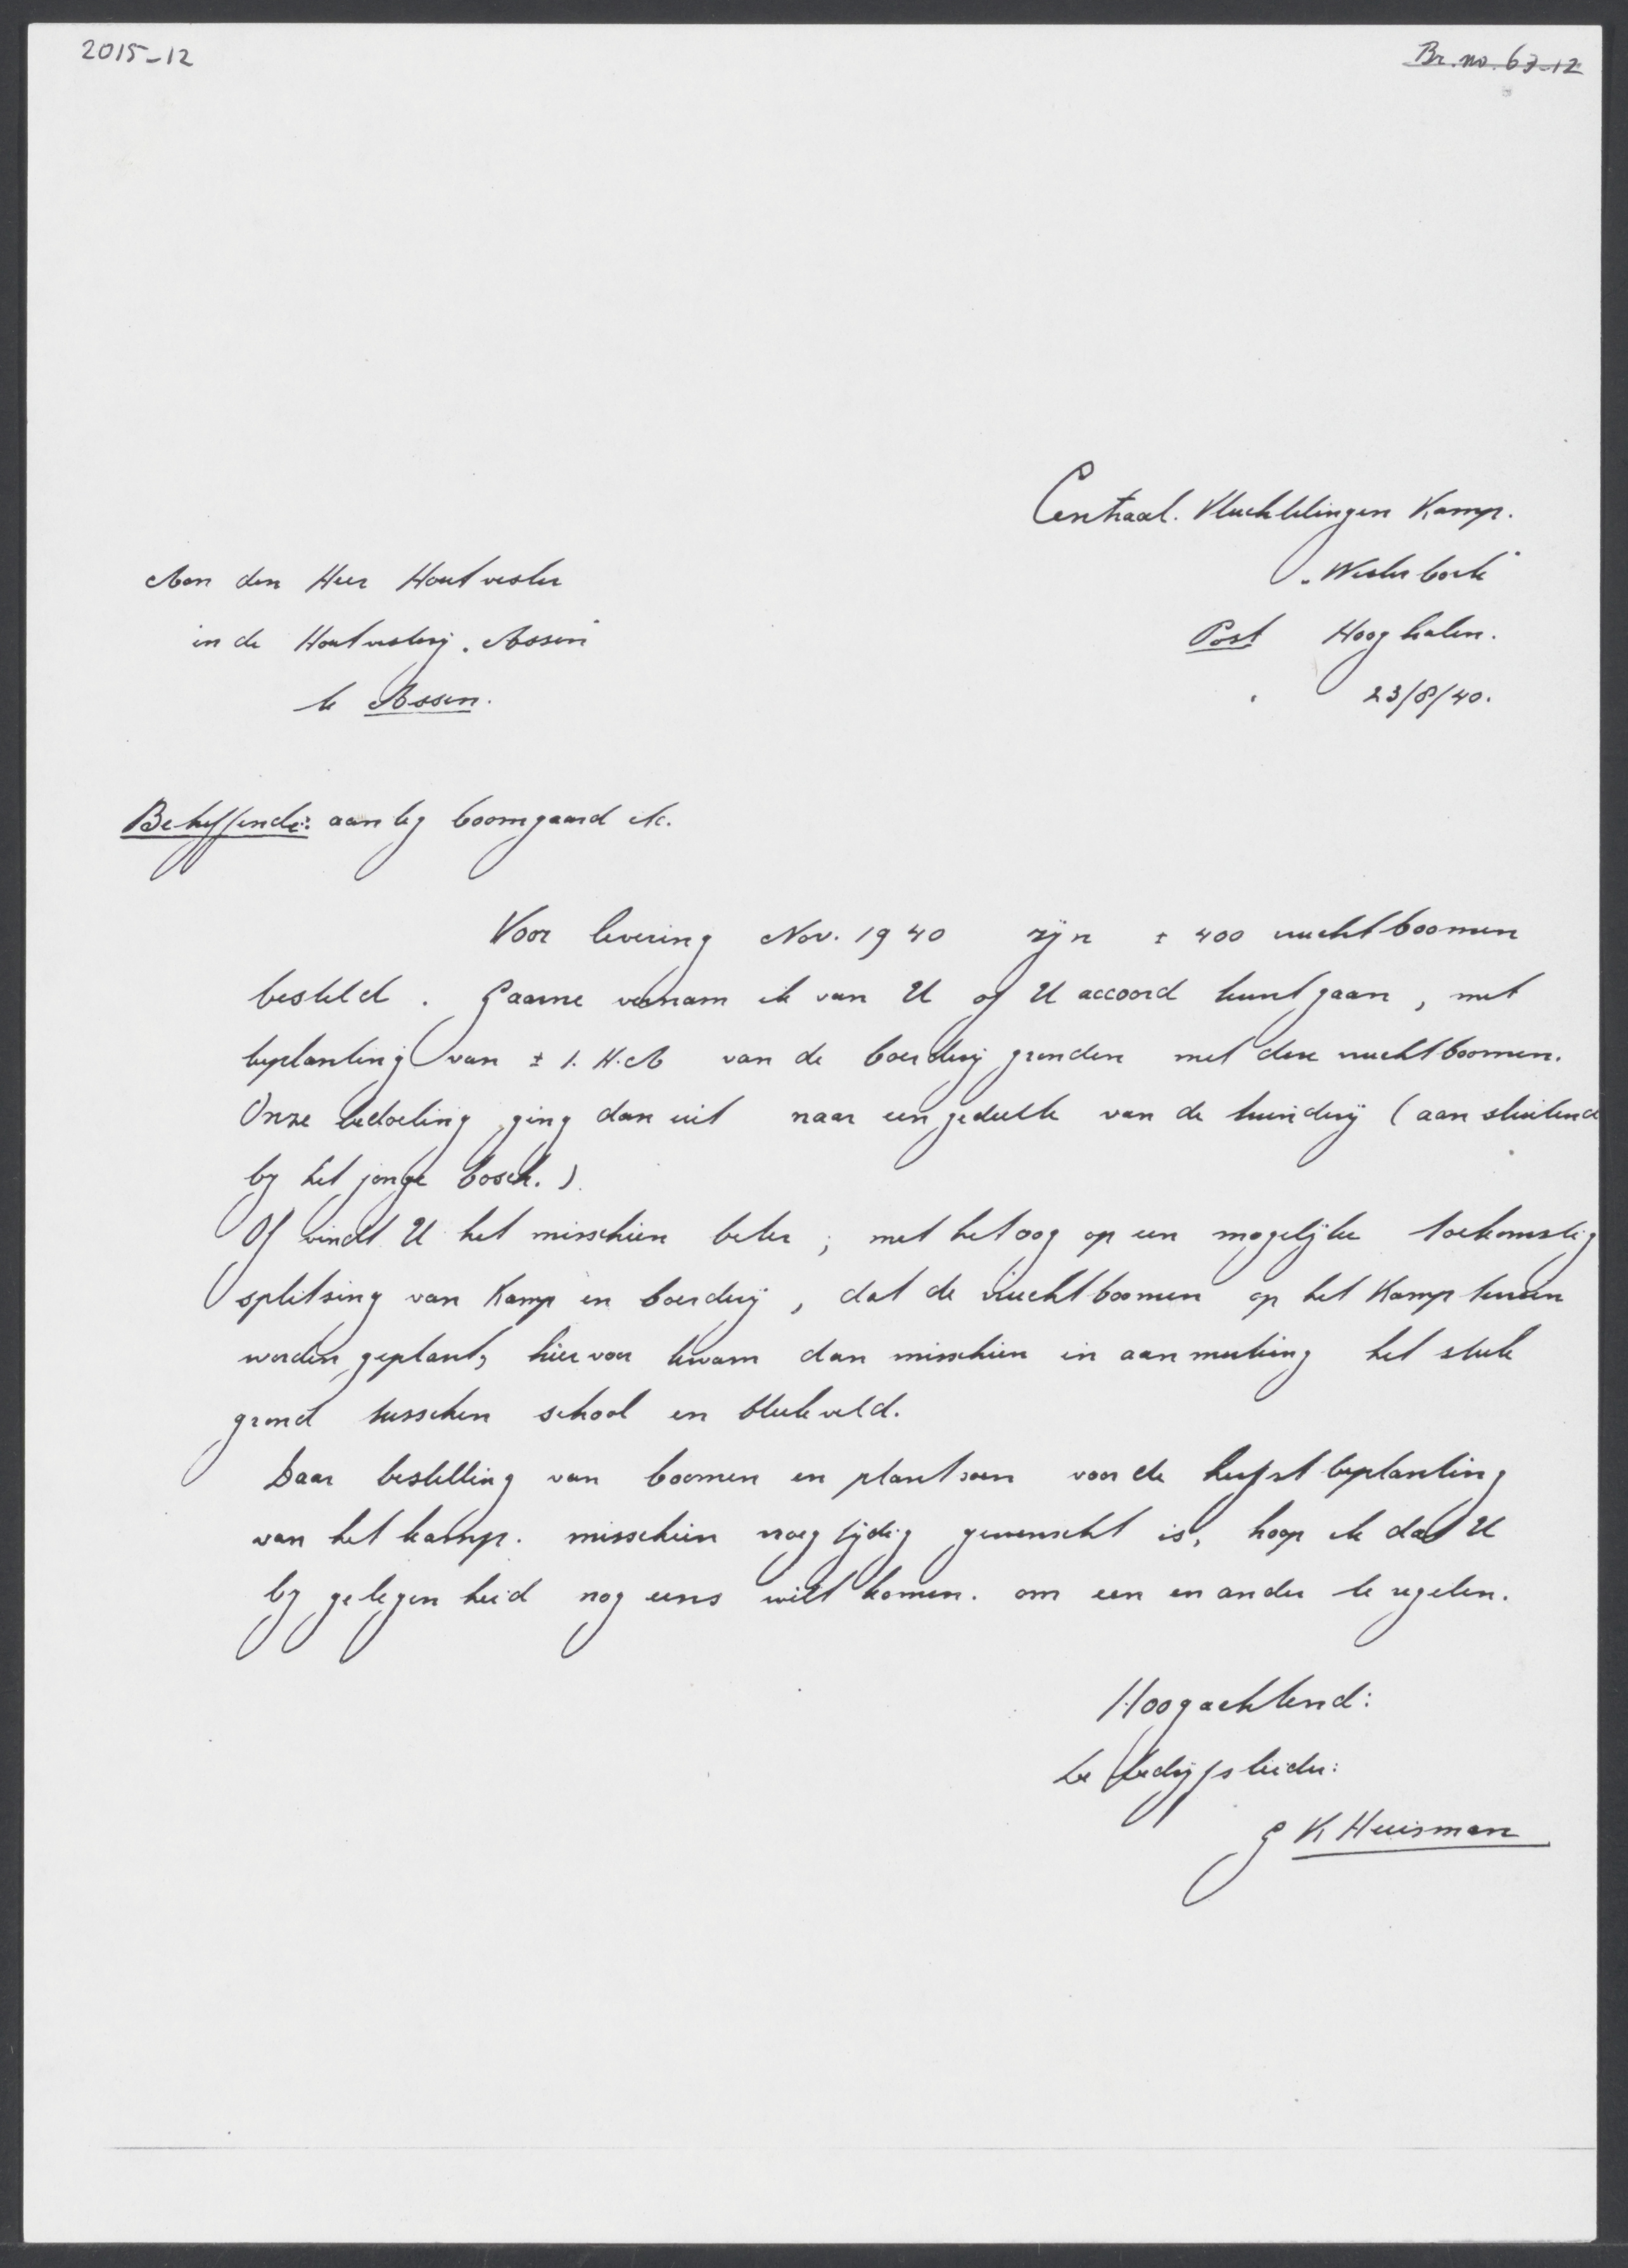 2015-12
Br. no. 63-12
Centraal. Vluchtelingen Kamp.
„Westerbork"
Post Hooghalen.
23/8/40.
Aan den Heer Houtvester
in de Houtvesterij „Assen"
te Assen.
Betreffende: aanleg boomgaard etc.
Voor levering Nov. 1940 zijn ± 400 vruchtboomen
besteld. Gaarne vernam ik van U of U accoord kunt gaan, met
beplanting van ± 1. H.A van de boerderij gronden met deze vruchtboomen.
Onze bedoeling ging dan uit naar een gedeelte van de tuinderij (aansluitend
bij het jonge bosch.)
Of vindt U het misschien beter; met het oog op een mogelijke toekomstig
splitsing van Kamp en boerderij, dat de vruchtboomen op het Kamp terrein
worden geplant, hiervoor kwam dan misschien in aanmerking het stuk
grond tusschen school en bleekveld.
Daar bestelling van boomen en plantsoen voor de herfst beplanting
van het kamp. misschien vroegtijdig gewenscht is, hoop ik dat U
bij gelegenheid nog eens wilt komen. om een en ander te regelen.
Hoogachtend:
De bedrijfsleider:
G K Huisman